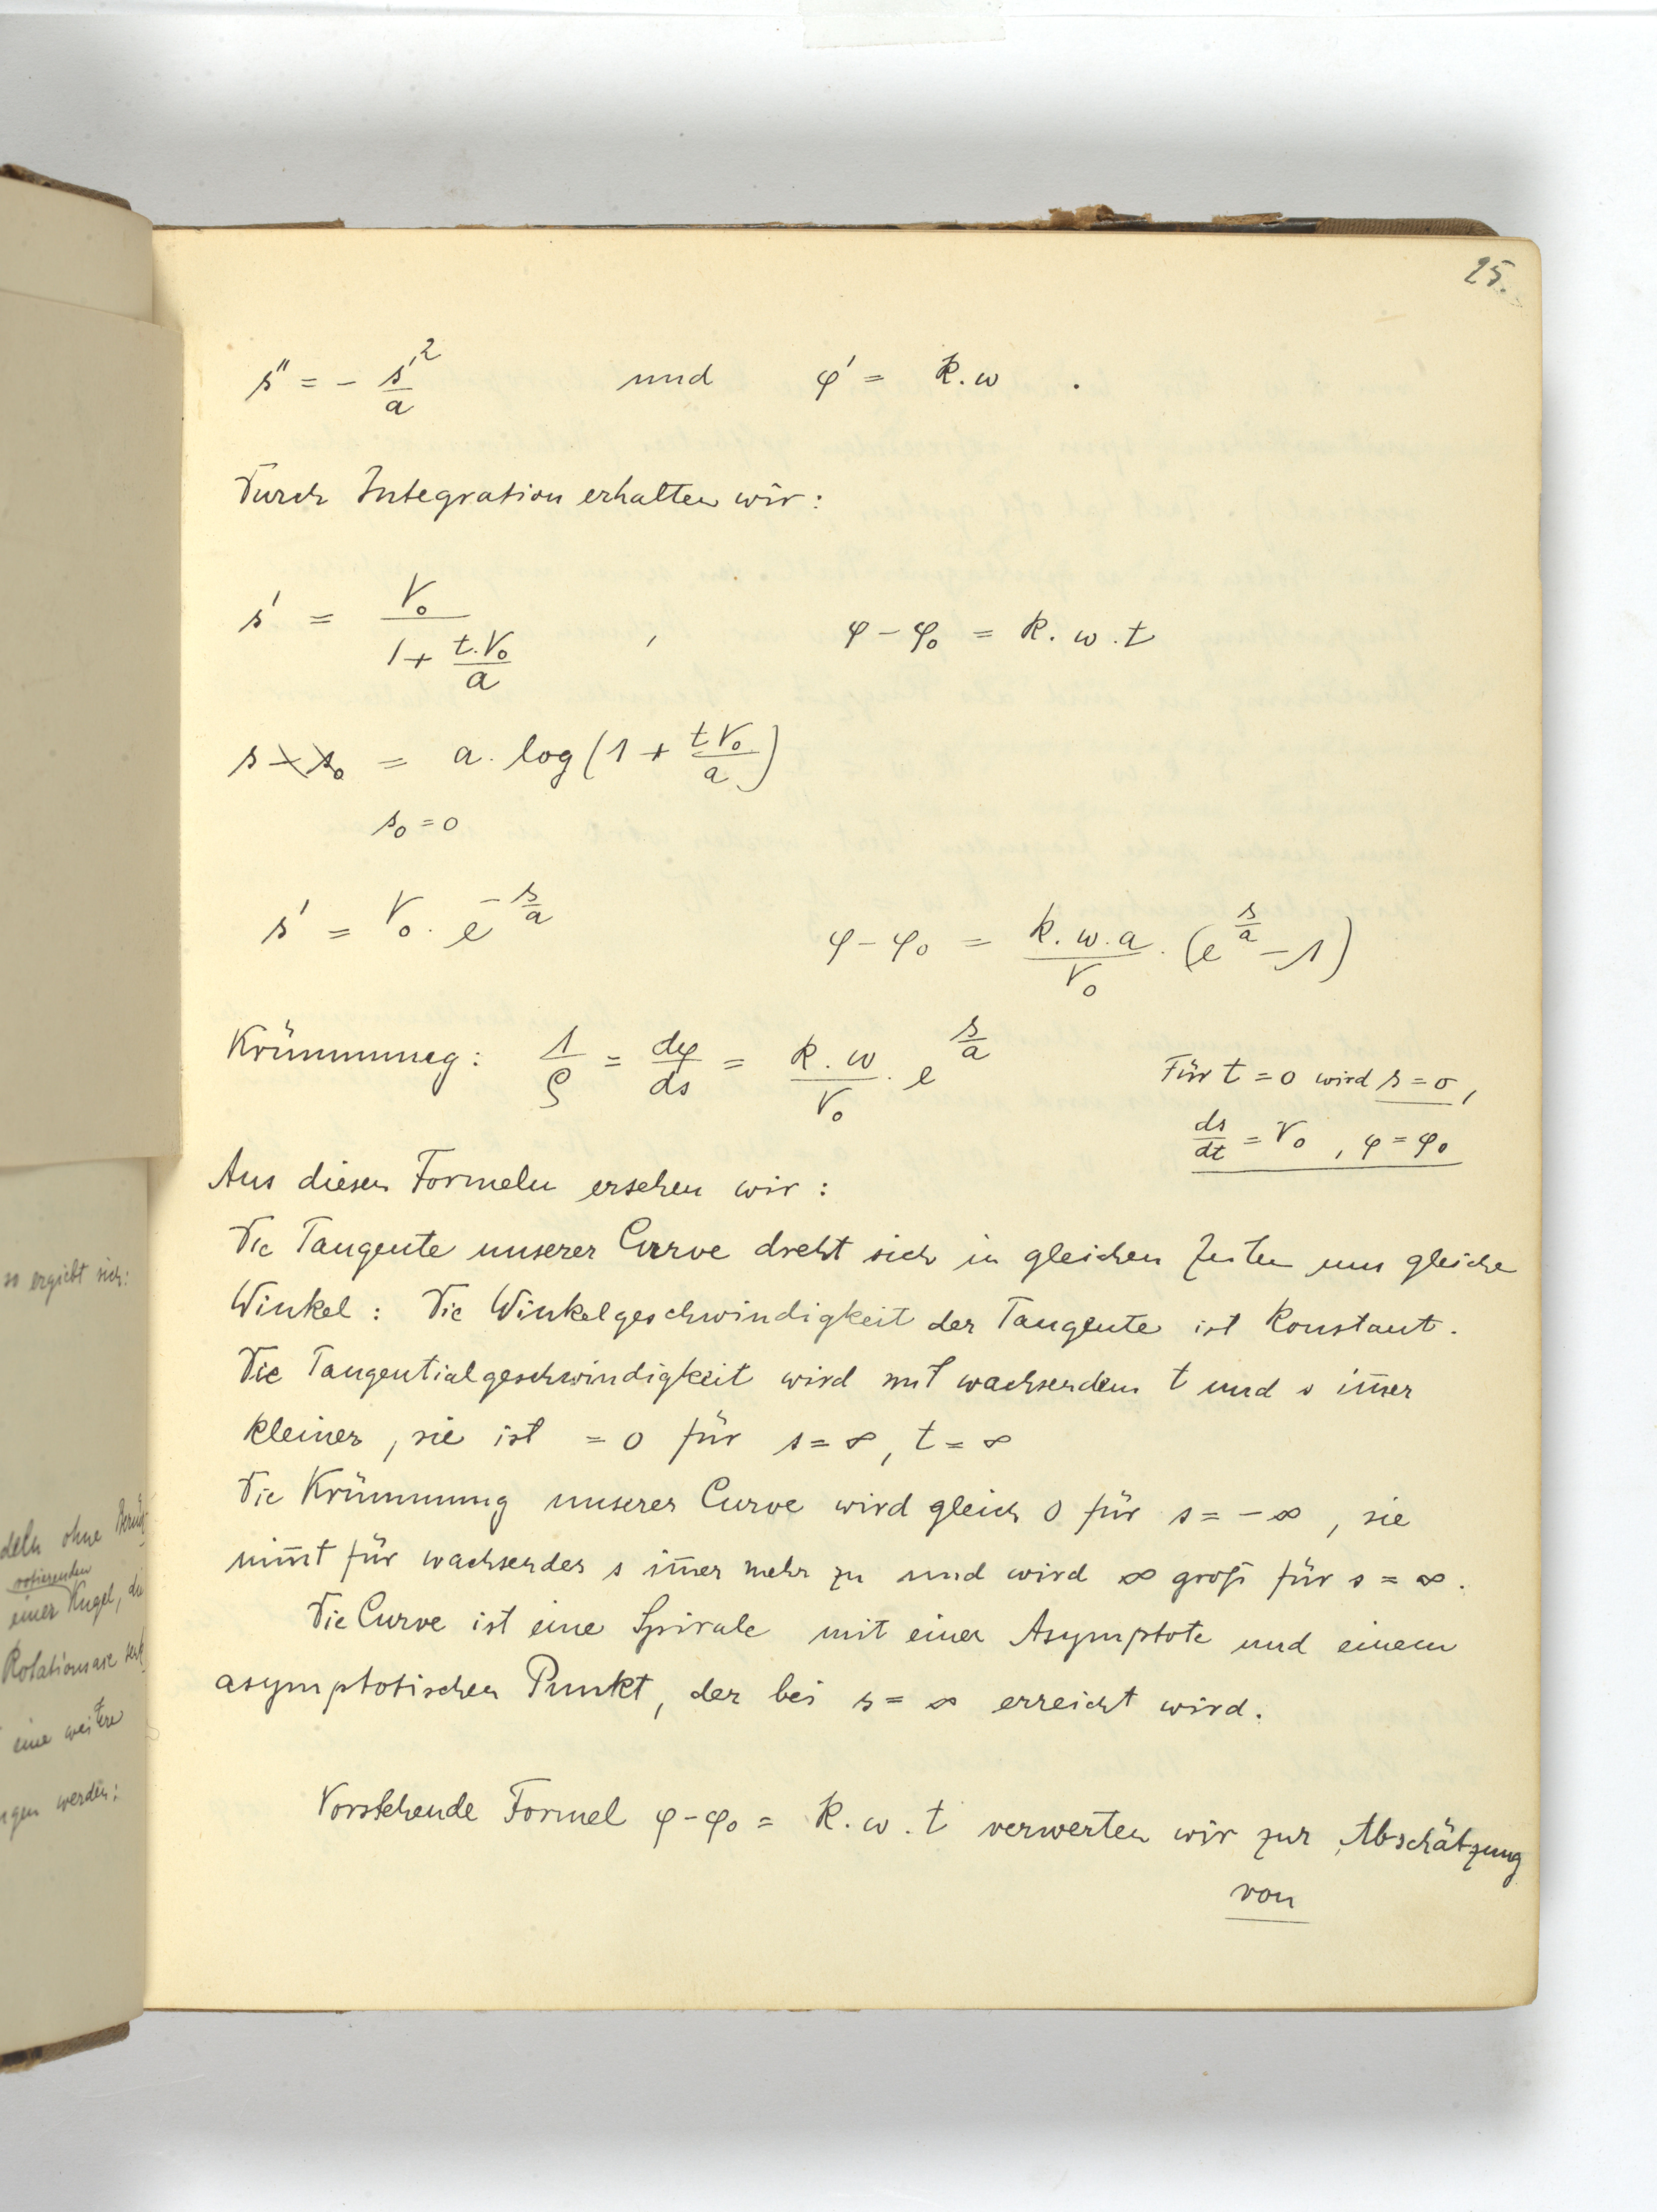 25.
s'' = - s'²/a und φ' = k.w .
Durch Integration erhalten wir:
s' = V₀ / (1 + t.V₀/a) , φ - φ₀ = k. w . t
s - s₀ = a. log (1 + t.V₀/a)
s₀ = 0
s' = V₀ . e^(-s/a) φ - φ₀ = k.w.a/V₀ . (e^(s/a) - 1)
Krümmung: 1/ρ = dφ/ds = k.w/V₀ . e^(s/a)
Für t = 0 wird s = 0,
ds/dt = V₀ , φ = φ₀
Aus diesen Formeln ersehen wir:
Die Tangente unserer Curve dreht sich in gleichen Zeiten um gleiche
Winkel: Die Winkelgeschwindigkeit der Tangente ist konstant.
Die Tangentialgeschwindigkeit wird mit wachsendem t und s im̄er
kleiner, sie ist = 0 für s = ∞, t = ∞
Die Krümmung unserer Curve wird gleich 0 für s = - ∞, sie
nim̄t für wachsendes s im̄er mehr zu und wird ∞ groß für s = ∞.
Die Curve ist eine Spirale mit einer Asymptote und einem
asymptotischen Punkt, der bei s = ∞ erreicht wird.
Vorstehende Formel φ - φ₀ = k. w . t verwerten wir zur Abschätzung
von
so ergiebt sich:
deln ohne
rotierenden
einer Kugel, die
Rotationsaxe
eine weitere
gen werden: